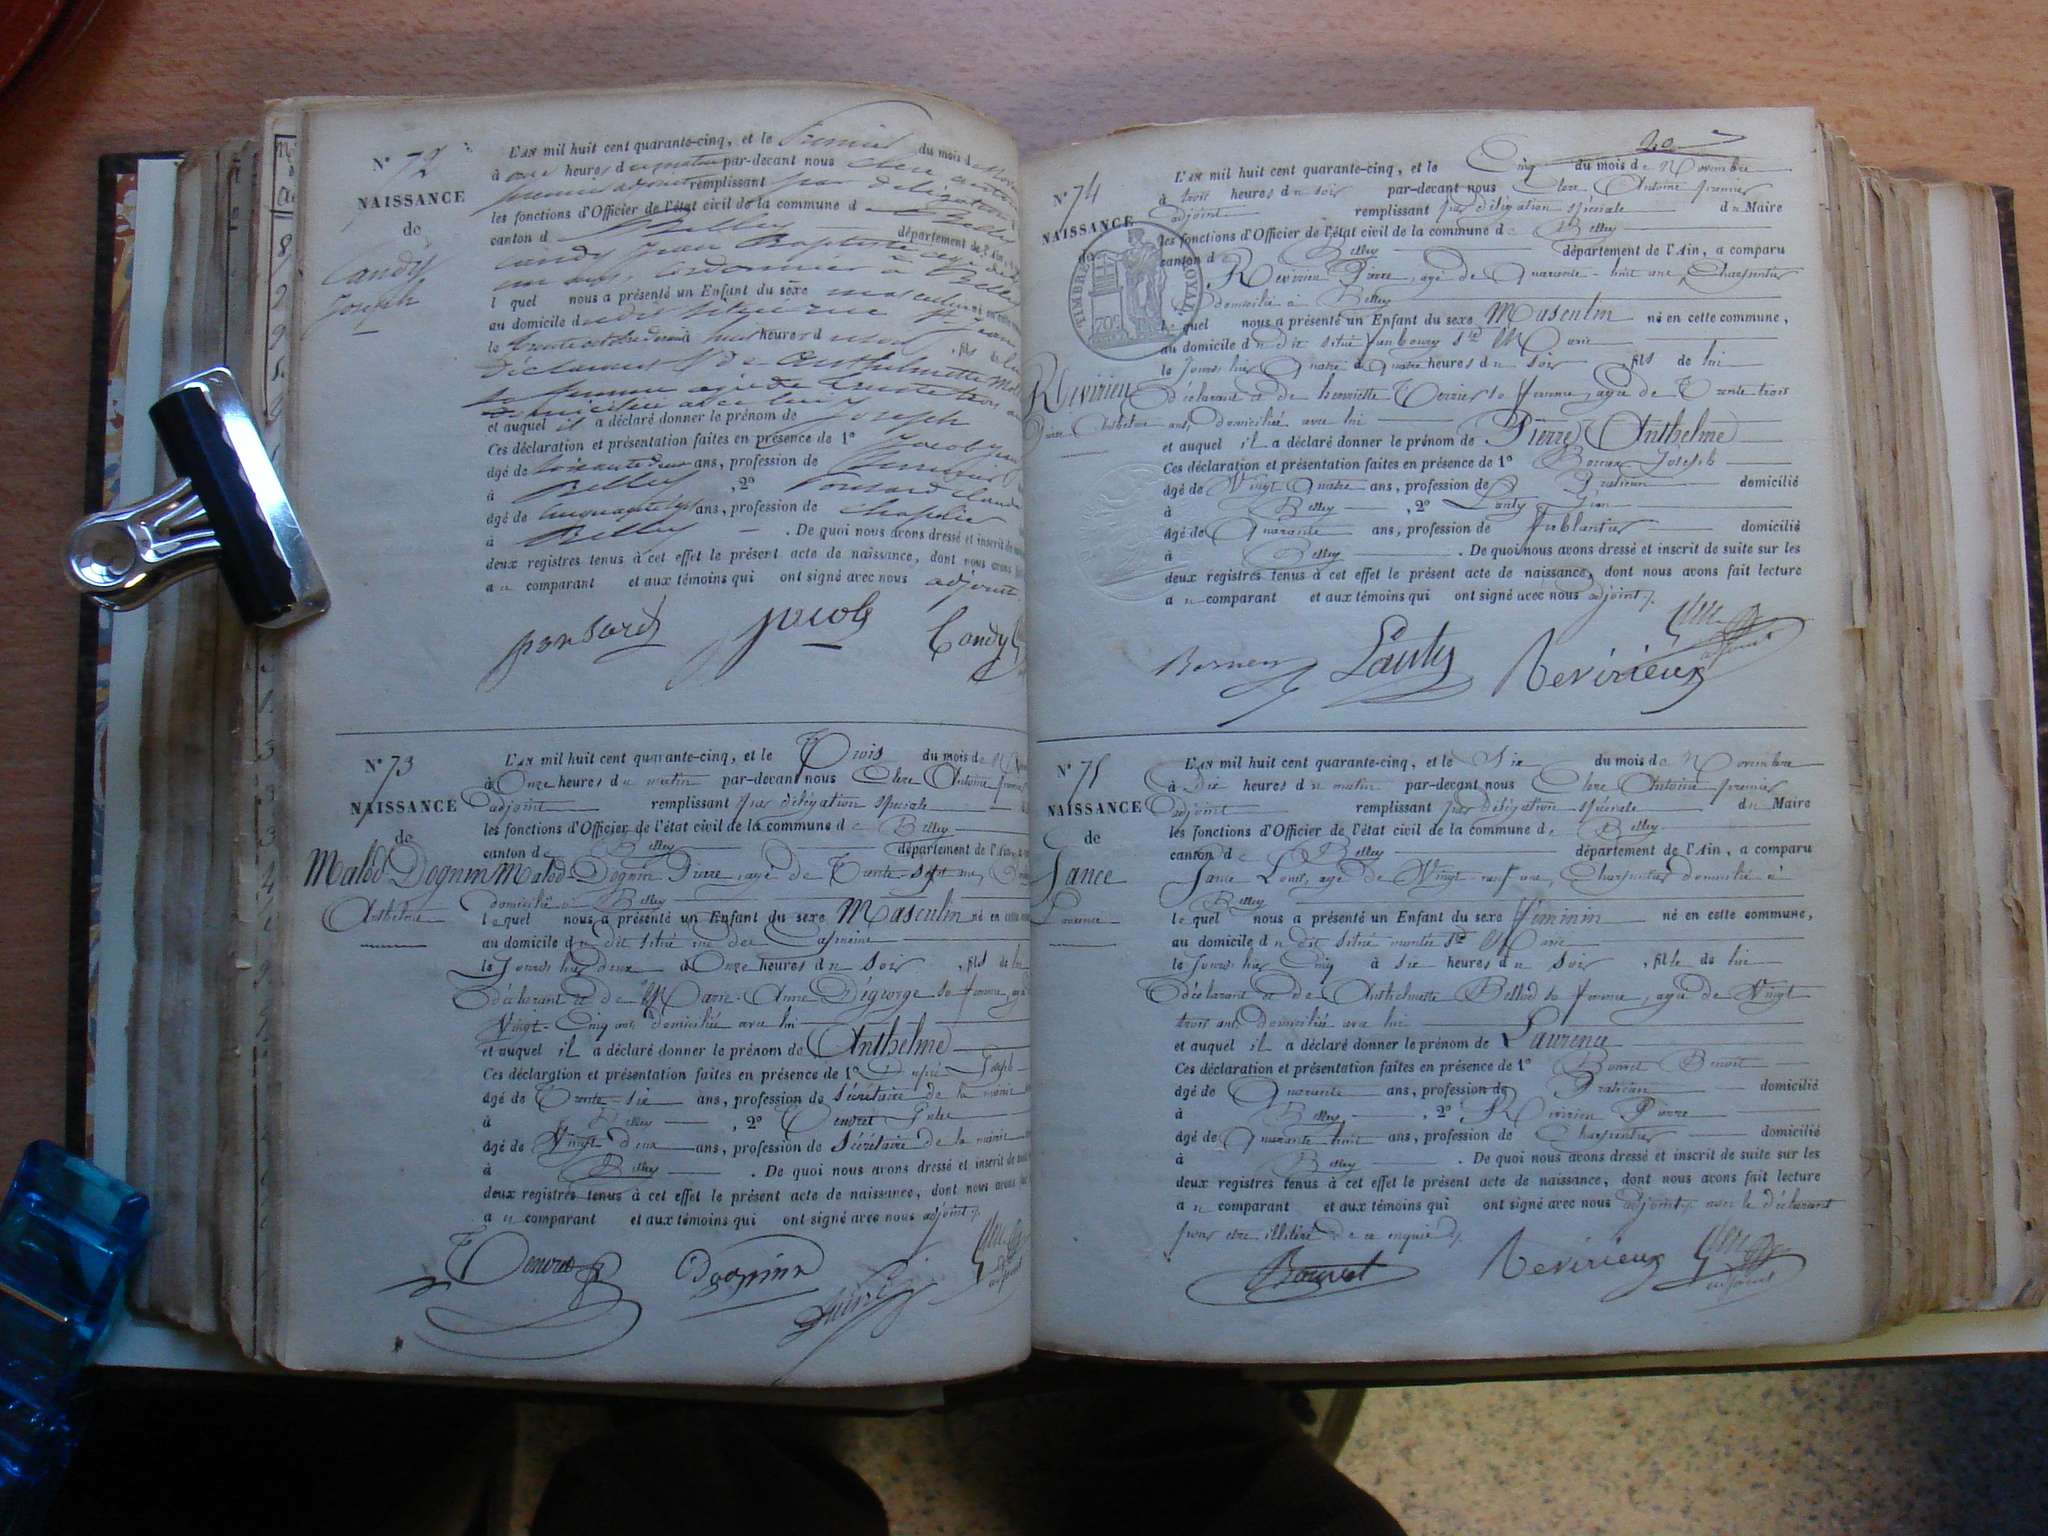 N° 72
NAISSANCE
de
Candy
Joseph
L'AN mil huit cent quarante-cinq, et le Premier du mois de
à onze heures du matin par-devant nous
premier adjoint remplissant par délégation
les fonctions d'Officier de l'état civil de la commune d
canton d Belley département de l'Ain,
Candy Jean Baptiste âgé de
cordonnier à Belley
lequel nous a présenté un Enfant du sexe masculin
au domicile
le à huit heures d , fils de lui
Déclarant & de Anthelmette
sa femme agée de trente trois
domiciliée avec lui
et auquel il a déclaré donner le prénom de Joseph
Ces déclaration et présentation faites en présence de 1° Jacob
âgé de ans, profession de
à Belley , 2° Ponsard Claude
âgé de cinquante ans, profession de chapelier
à Belley . De quoi nous avons dressé et inscrit de
deux registres tenus à cet effet le présent acte de naissance, dont nous avons
au comparant et aux témoins qui ont signé avec nous adjoint.
ponsard jacob Candy
N° 73
NAISSANCE
de
Malod Dognin
Anthelme
L'AN mil huit cent quarante-cinq, et le Trois du mois de
à Onze heures du matin par-devant nous Clerc Antoine premier
adjoint remplissant par délégation spéciale
les fonctions d'Officier de l'état civil de la commune de Belley
canton de Belley département de l'Ain,
Malod-Dognin Pierre, agé de Trente-Sept ans,
domicilié à Belley
lequel nous a présenté un Enfant du sexe Masculin né en cette
au domicile du dit situé rue des
le Jour d'hier deux à Onze heures du Soir , fils de lui
déclarant et de Marie-Anne Dégeorge sa femme, agée
Vingt-Cinq ans domiciliée avec lui
et auquel il a déclaré donner le prénom de Anthelme
Ces déclaration et présentation faites en présence de 1° Dupré Joseph
âgé de Trente-six ans, profession de Sécrétaire de la mairie
à Belley , 2° Tenvret
âgé de Vingt deux ans, profession de Sécrétaire de la mairie
à Belley . De quoi nous avons dressé et inscrit de
deux registres tenus à cet effet le présent acte de naissance, dont nous avons
au comparant et aux témoins qui ont signé avec nous adjoint ;.
Dognin
adjoint
N° 74
NAISSANCE
de
TIMBRE ROYAL
70c
Révirieu
Pierre Anthelme
L'AN mil huit cent quarante-cinq, et le Cinq du mois de Novembre
à trois heures du soir par-devant nous Clerc Antoine premier
adjoint remplissant par délégation spéciale du Maire
les fonctions d'Officier de l'état civil de la commune de Belley
canton de Belley département de l'Ain, a comparu
Révirieu Pierre, agé de Quarante-huit ans, Charpentier
domicilié à Belley
lequel nous a présenté un Enfant du sexe Masculin né en cette commune,
au domicile du dit situé faubourg Ste Marie
le Jour d'hier Quatre à Quatre heures du soir , fils de lui
déclarant et de henriette sa femme, agée de Trente trois
ans, domiciliée avec lui
et auquel il a déclaré donner le prénom de Pierre Anthelme
Ces déclaration et présentation faites en présence de 1° Joseph
âgé de Vingt Quatre ans, profession de Praticien domicilié
à Belley , 2° Lauty
âgé de Quarante ans, profession de ferblantier domicilié
à Belley . De quoi nous avons dressé et inscrit de suite sur les
deux registres tenus à cet effet le présent acte de naissance, dont nous avons fait lecture
au comparant et aux témoins qui ont signé avec nous adjoint ;.
Lauty Revirieux
adjoint
N° 75
NAISSANCE
de
Jance
Laurence
L'AN mil huit cent quarante-cinq, et le Six du mois de Novembre
à Dix heures du matin par-devant nous Clerc Antoine premier
adjoint remplissant par délégation spéciale du Maire
les fonctions d'Officier de l'état civil de la commune de Belley
canton de Belley département de l'Ain, a comparu
Jance Louis, agé de Vingt-neuf ans, Charpentier domicilié à
Belley
lequel nous a présenté un Enfant du sexe féminin né en cette commune,
au domicile du dit situé montée Ste Marie
le Jour d'hier Cinq à six heures du Soir , fille de lui
déclarant et de Anthelmette Bellod sa femme, agée de Vingt
trois ans domiciliée avec lui
et auquel il a déclaré donner le prénom de Laurence
Ces déclaration et présentation faites en présence de 1° Bouvet Benoit
âgé de Quarante ans, profession de Praticien domicilié
à Belley , 2° Révirieu Pierre
âgé de Quarante huit ans, profession de Charpentier domicilié
à Belley . De quoi nous avons dressé et inscrit de suite sur les
deux registres tenus à cet effet le présent acte de naissance, dont nous avons fait lecture
au comparant et aux témoins qui ont signé avec nous adjoint, avec le déclarant
pour être illitéré de ce enquis ;.
Bouvet Revirieux
adjoint